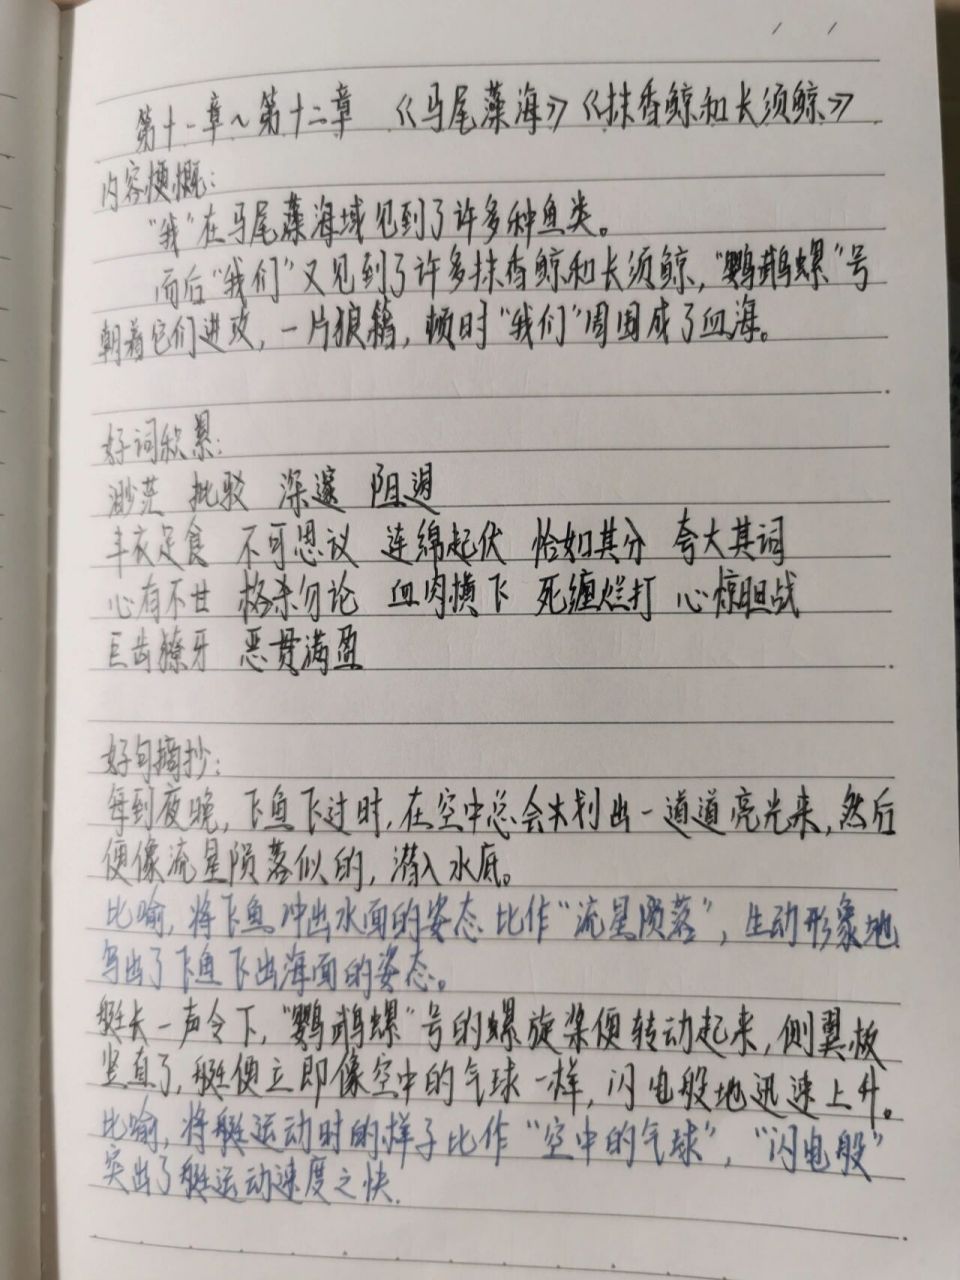 第十一章~第十二章 《马尾藻海》《抹香鲸和长须鲸》
内容梗概:
“我”在马尾藻海域见到了许多种鱼类。
而后“我们”又见到了许多抹香鲸和长须鲸,“鹦鹉螺”号
朝着它们进攻,一片狼籍,顿时“我们”周围成了血海。
好词积累:
渺茫 批驳 深邃 阻遏
丰衣足食 不可思议 连绵起伏 恰如其分 夸大其词
心有不甘 格杀勿论 血肉横飞 死缠烂打 心惊胆战
巨齿獠牙 恶贯满盈
好句摘抄:
每到夜晚,飞鱼飞过时,在空中总会划出一道道亮光来,然后
便像流星陨落似的,潜入水底。
比喻,将飞鱼冲出水面的姿态比作“流星陨落”,生动形象地
写出了飞鱼飞出海面的姿态。
艇长一声令下,“鹦鹉螺”号的螺旋桨便转动起来,侧翼板
竖直了,艇便立即像空中的气球一样,闪电般地迅速上升。
比喻,将艇运动时的样子比作“空中的气球”,“闪电般”
突出了艇运动速度之快.